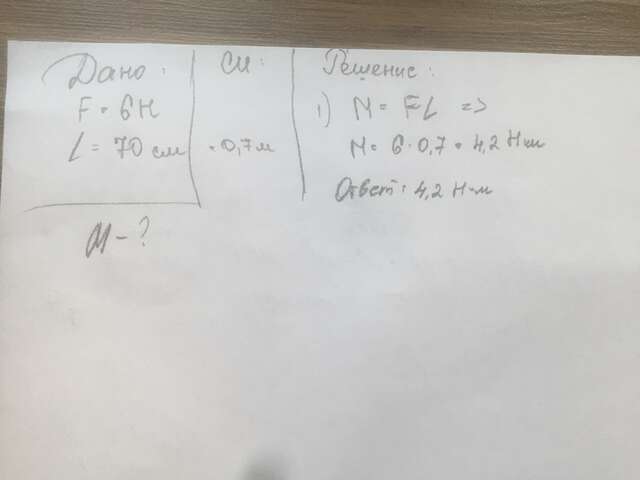 Дано:
F = 6Н
L = 70 см
М - ?
СИ:
= 0,7 м
Решение:
1) М = FL =>
М = 6·0,7 = 4,2 Нм
Ответ: 4,2 Н·м